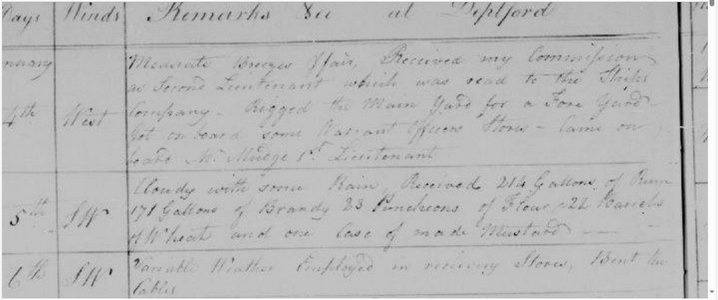 Days Winds Remarks &c at Deptford
January
Moderate Breezes & fair, Received my Commission
as Second Lieutenant which was read to the Ships
4th West Company - Rigged the Main Yard for a Fore Yard
Got on board some Warrant Officers Stores - Came on
board Mr Mudge 1st Lieutenant
Cloudy with some Rain, Received 214 Gallons of Rum
5th SW 171 Gallons of Brandy 23 Puncheons of Flour 22 Barrels
of Wheat and one Case of made Mustard
6th SW Variable Weather Employed in receiving Stores, Bent the
Cables